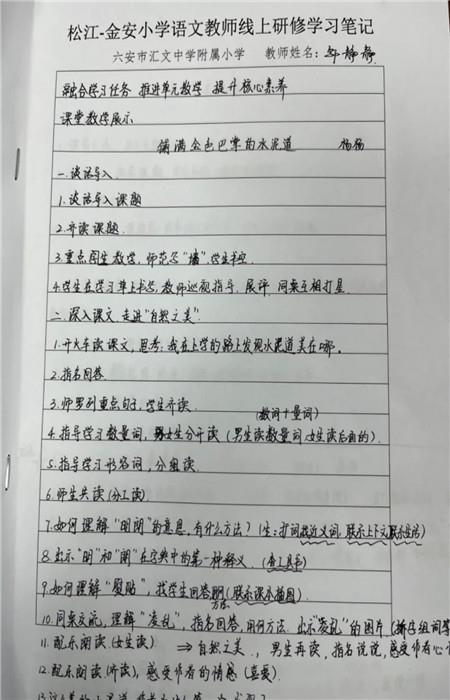 松江-金安小学语文教师线上研修学习笔记
六安市汇文中学附属小学 教师姓名: 静静
融合学习任务 推进单元教学 提升核心素养
课堂教学展示
铺满金色巴掌的水泥道 杨杨
一.谈话导入
1.谈话导入课题
2.齐读课题.
3.重点图生教学, 师范写"墙".学生书空.
4.学生在学习单上书写, 教师巡视指导, 展评, 同桌互相打星.
二.深入课文.走进"自然之美".
1.开火车读课文, 思考: 我在上学的路上发现水泥道美在哪。
2.指名回答.
3.师罗列重点句子, 学生齐读.
(数词+量词)
4.指导学习数量词, 男女生分开读 (男生读数量词.女生读后面的).
5.指导学习形容词, 分组读.
6.师生共读(分工读).
7.如何理解"明朗"的意思, 有什么方法? (生:扩词找近义词, 联系上下文联系生活)
8.出示"明"和"朗"在字典中的第一种释义. (查工具书)
9.如何理解"熨贴", 找学生回答明(联系课本插图)
方法.
10.同桌交流, 理解"凌乱", 指名回答.用何方法. 出示"凌乱"的图片 (拆字组词等
11.配乐朗读.(女生读) ⇒自然之美., 男生再读, 指名说说, 感受作者心
12.配乐朗读(齐读), 感受作者的情感 (喜爱).